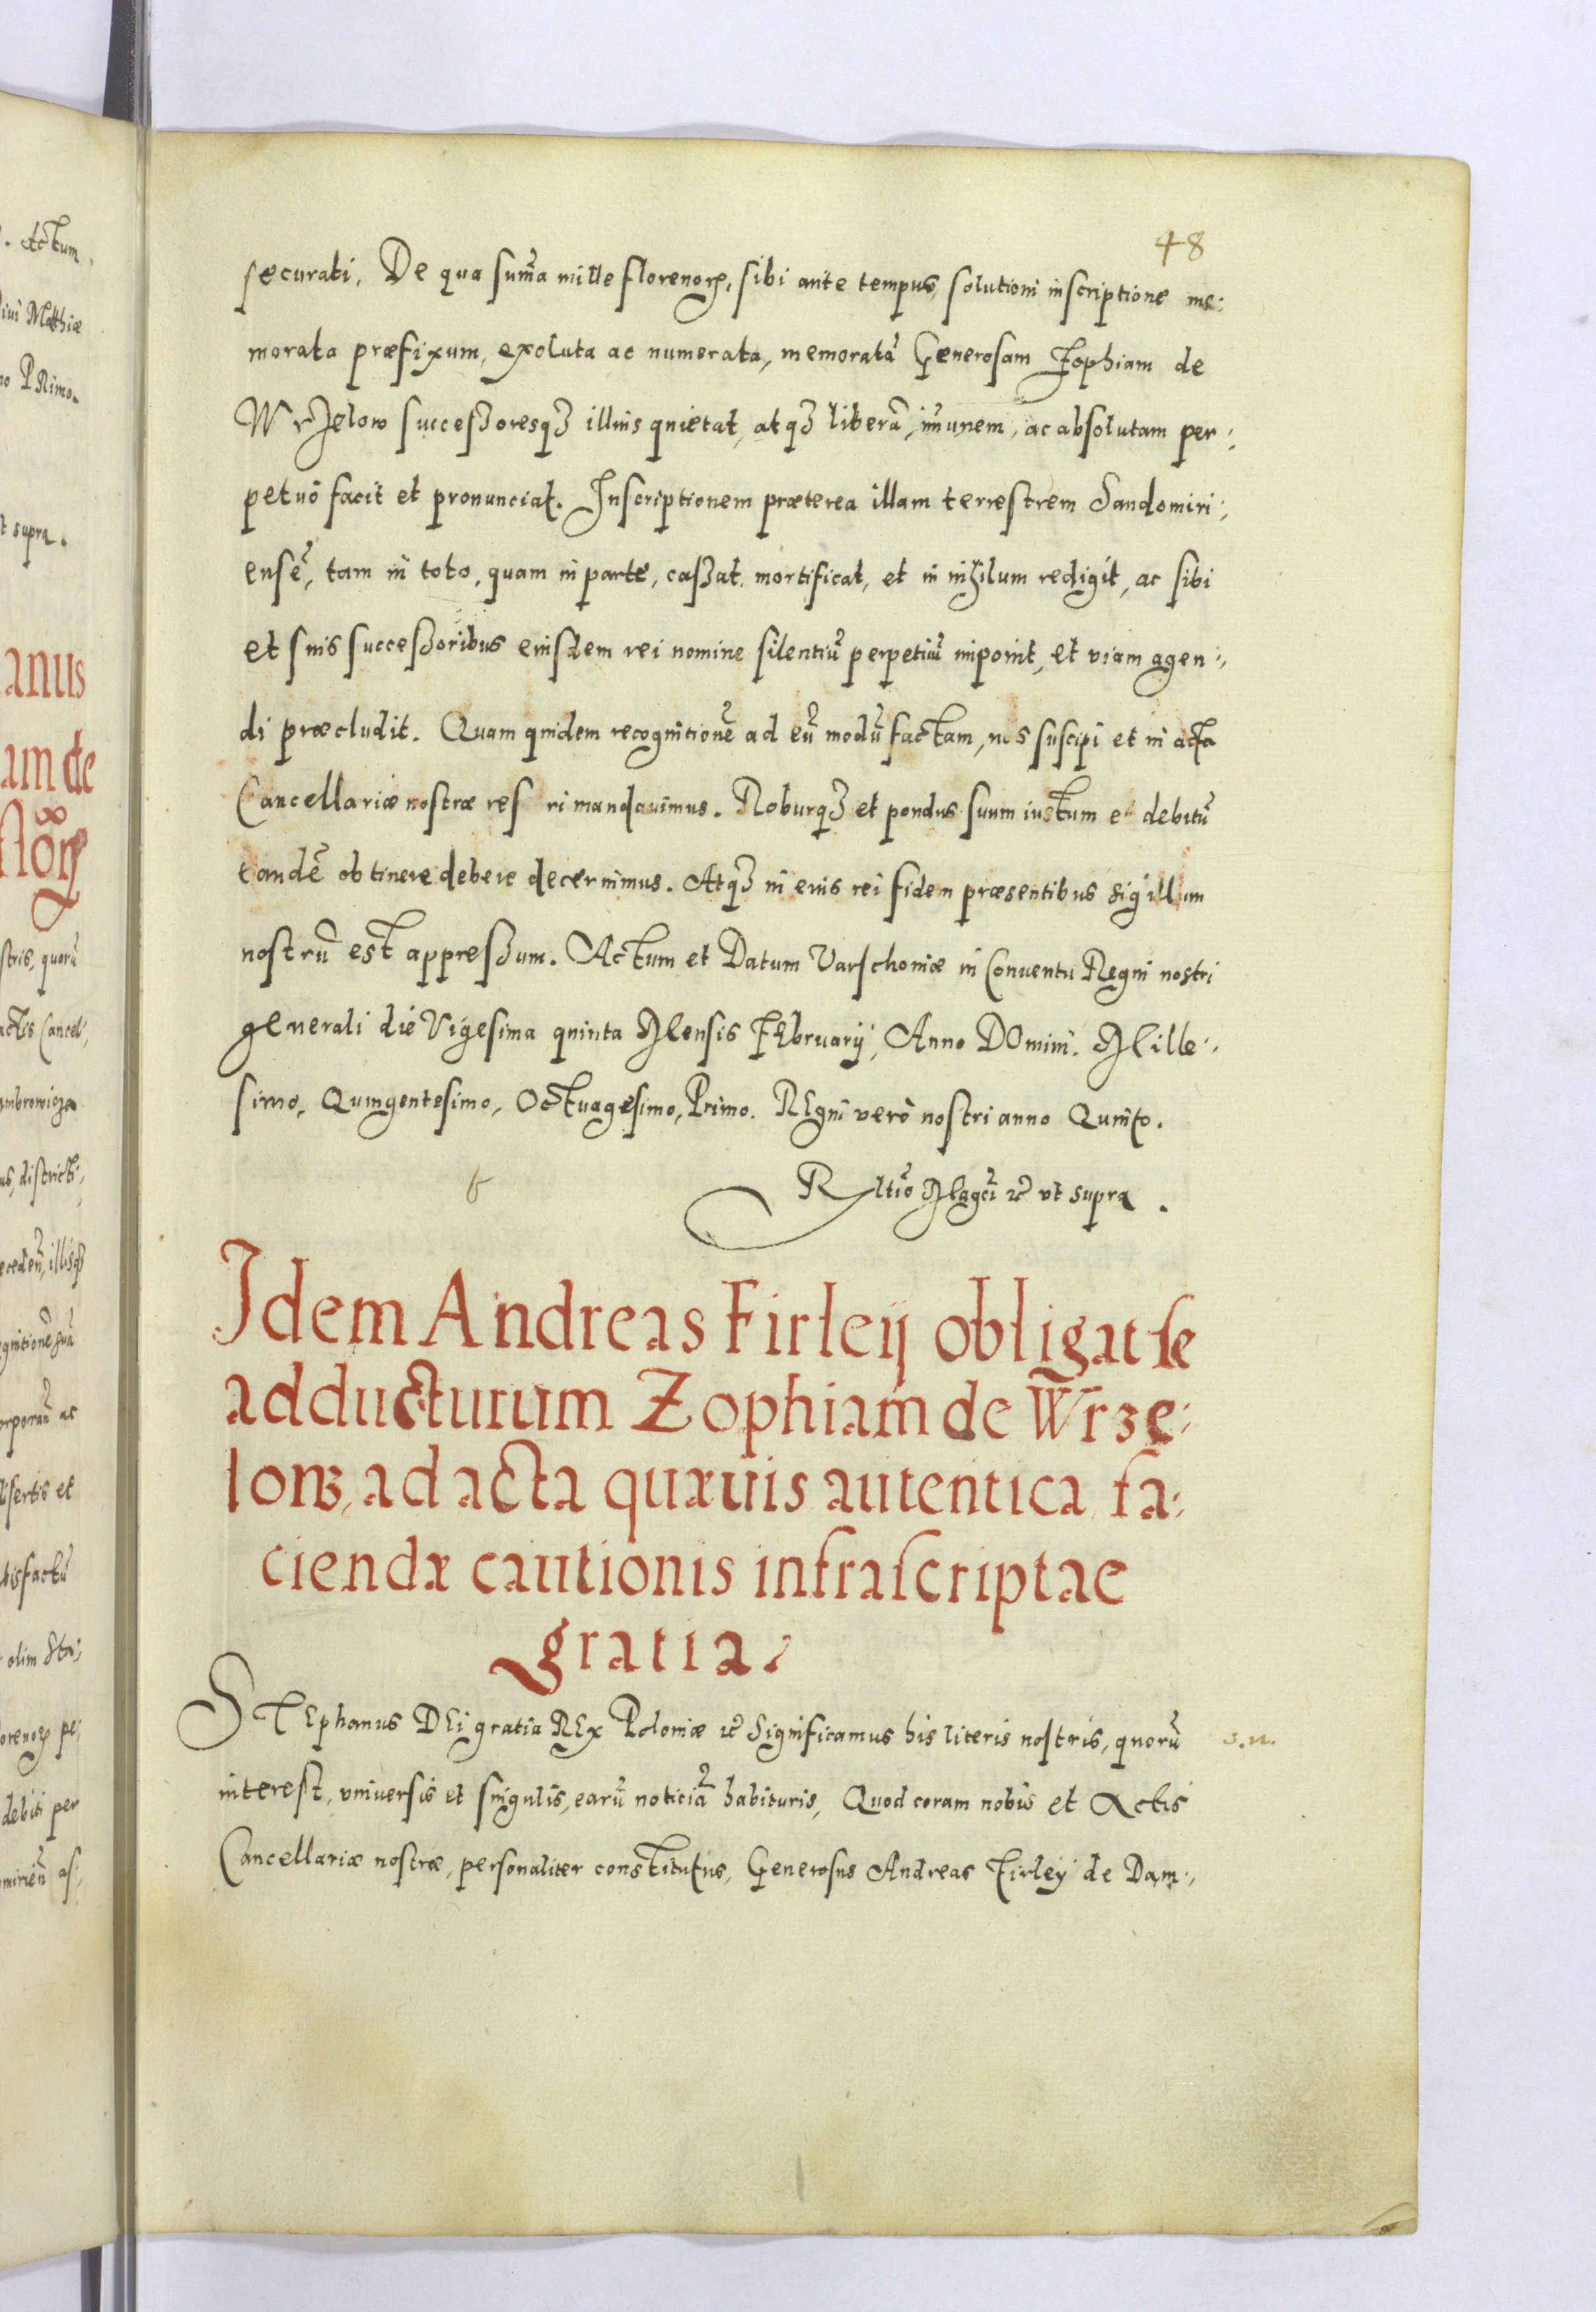 48
securati. De qua sum̃a mille florenoꝝ, sibi ante tempus solutioni inscriptione me:
morata præfixum, exoluta ac numerata, memoratã Generosam Zophiam de
Wrzelow successoresqꝫ illius quietat, atqꝫ liberã, im̃unem, ac absolutam per:
petuo facit et pronunciat. Inscriptionem præterea illam terrestrem Sandomiri:
ensẽ, tam in toto, quam in parte, cassat, mortificat, et in nihilum redigit, ac sibi
et suis successoribus eiusdem rei nomine silentiũ perpetuũ imponit, et viam agen:
di præcludit. Quam quidem recognitionẽ ad eũ modũ factam, nos suscipi et in acta
Cancellariæ nostræ res ri mandauimus. Roburqꝫ et pondus suum iustum et debitũ
eandẽ obtinere debere decernimus. Atqꝫ in eius rei fidem præsentibus sigillum
nostrũ est appressum. Actum et Datum Varschouiæ in Conuentu Regni nostri
generali die Vigesima quinta Mensis FEbruarij, Anno DOmini. Mille:
simo, Quingentesimo, Octuagesimo, Primo. REgni vero nostri anno Quinto.
Rltio Magci ꝛc̃ vt supra.
Idem Andreas Firleij obligat se
adducturum Zophiam de Wrze:
low, ad acta quævis autentica, fa:
ciendæ cautionis infrascriptae
gratia.
STEphanus DEi gratia REx Poloniæ ꝛc̃ Significamus his literis nostris, quorũ
s.n.
interest, vniuersis et singulis, earũ noticiã habituris, Quod coram nobis et Actis
Cancellariæ nostræ, personaliter constitutus, Generosus Andreas Firley de Dam: